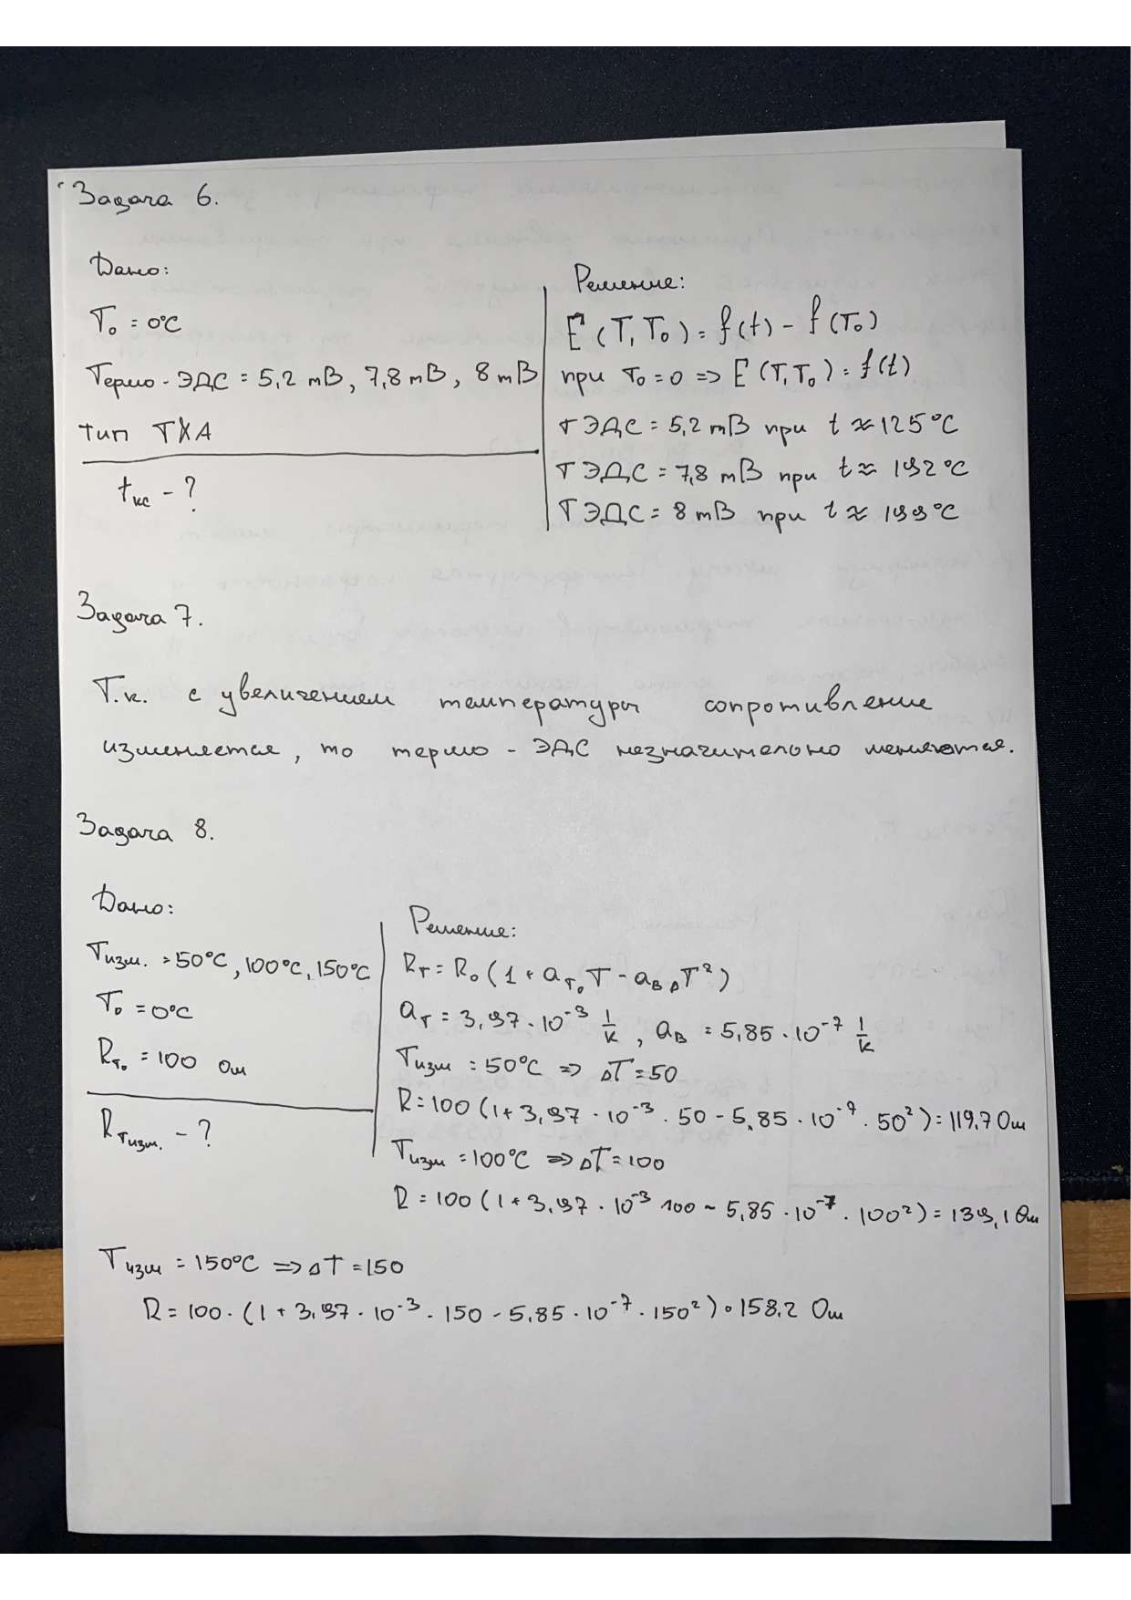 Задача 6.
Дано:
T₀ = 0°C
Термо-ЭДС = 5,2 mВ, 7,8 mВ, 8 mВ
тип ТХА
t кс - ?
Решение:
E (T, T₀) = f(t) - f(T₀)
при T₀ = 0 => E (T, T₀) = f(t)
т ЭДС = 5,2 mВ при t ≈ 125°C
т ЭДС = 7,8 mВ при t ≈ 192°C
т ЭДС = 8 mВ при t ≈ 199°C
Задача 7.
Т.к. с увеличением температуры сопротивление
изменяется, то термо - ЭДС незначительно меняются.
Задача 8.
Дано:
Tизм. = 50°C, 100°C, 150°C
T₀ = 0°C
R т₀ = 100 Ом
R Tизм. - ?
Решение:
R т = R₀ (1 + a т₀ T - a в ΔT²)
a т = 3,97 · 10⁻³ 1/k, a в = 5,85 · 10⁻⁷ 1/k
Tизм = 50°C => ΔT = 50
R = 100 (1 + 3,97 · 10⁻³ · 50 - 5,85 · 10⁻⁷ · 50²) = 119,7 Ом
Tизм = 100°C => ΔT = 100
R = 100 (1 + 3,97 · 10⁻³ 100 - 5,85 · 10⁻⁷ · 100²) = 139,1 Ом
Tизм = 150°C => ΔT = 150
R = 100 · (1 + 3,97 · 10⁻³ · 150 - 5,85 · 10⁻⁷ · 150²) = 158,2 Ом